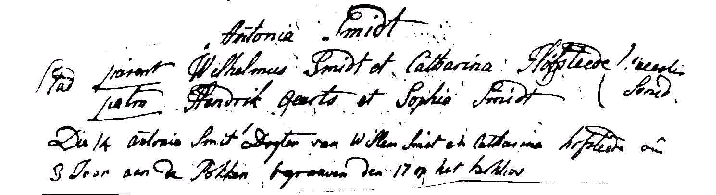 Antonia Smidt
Stad parent Wilhelmus Smidt et Catharina Hofsteede
patri Hendrik Geerts et Sophia Smidt
Die 14 Antonia Smit Dogter van Willem Smit en Catharina hofstede
3 Jaar aan de Pokken begraaven den 17 op het kerkhof